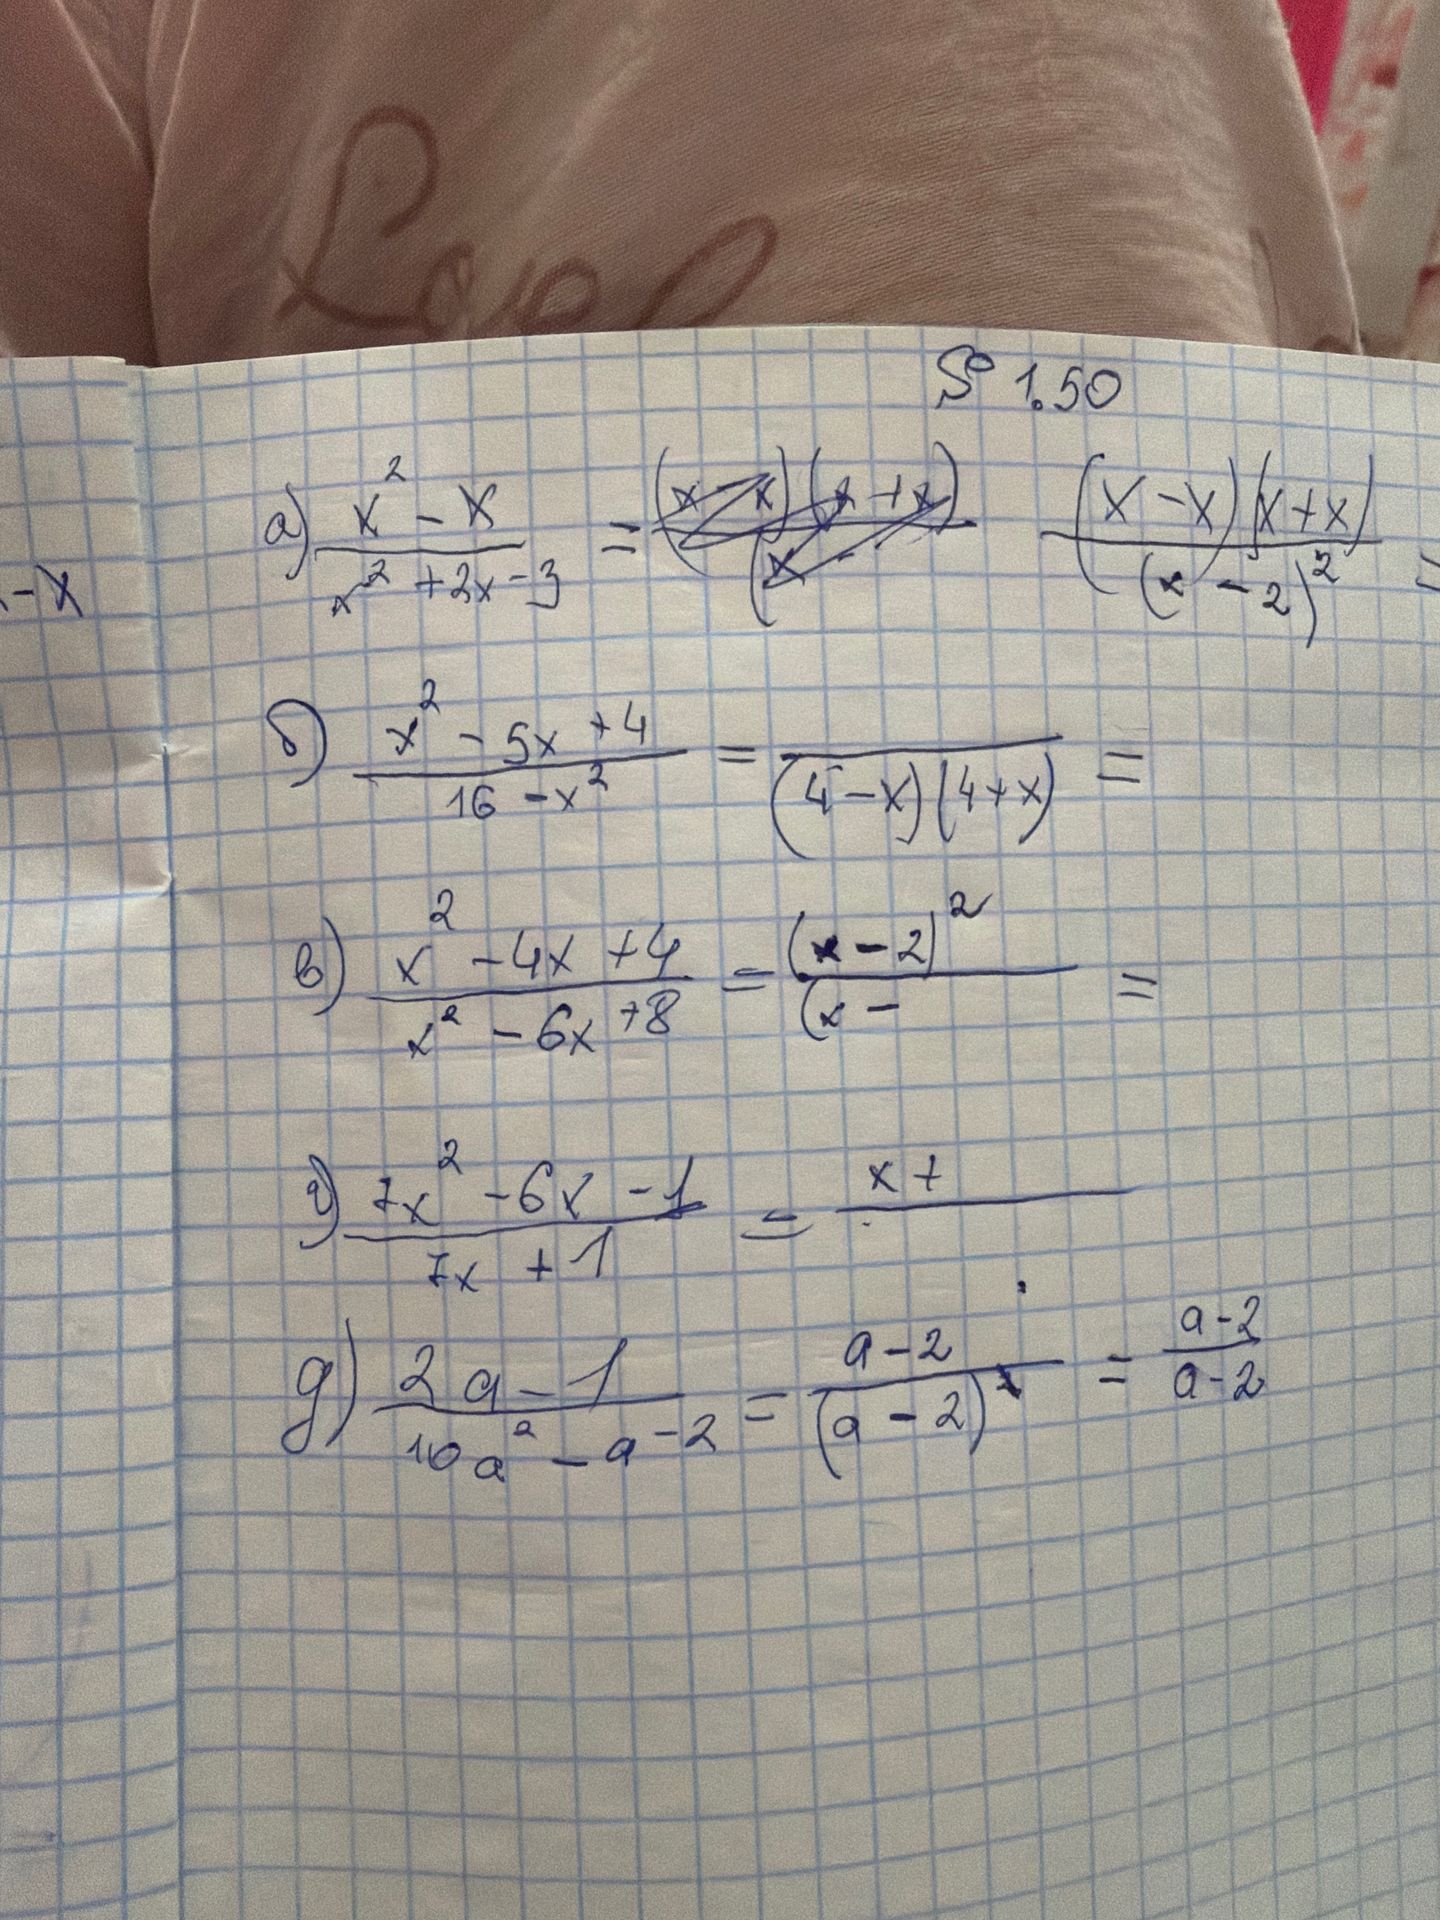 Love
№ 1.50
а) (x² - x)/(x² + 2x - 3) = ((x - x)(x + x))/((x - ((x - x)(x + x))/((x - 2)²) =
- x
б) (x² - 5x + 4)/(16 - x²) = /((4 - x)(4 + x)) =
в) (x² - 4x + 4)/(x² - 6x + 8) = ((x - 2)²)/((x - =
г) (7x² - 6x - 1)/(7x + 1) = x +
д) (2a - 1)/(10a² - a - 2) = (a - 2)/((a - 2)²) = (a - 2)/(a - 2)